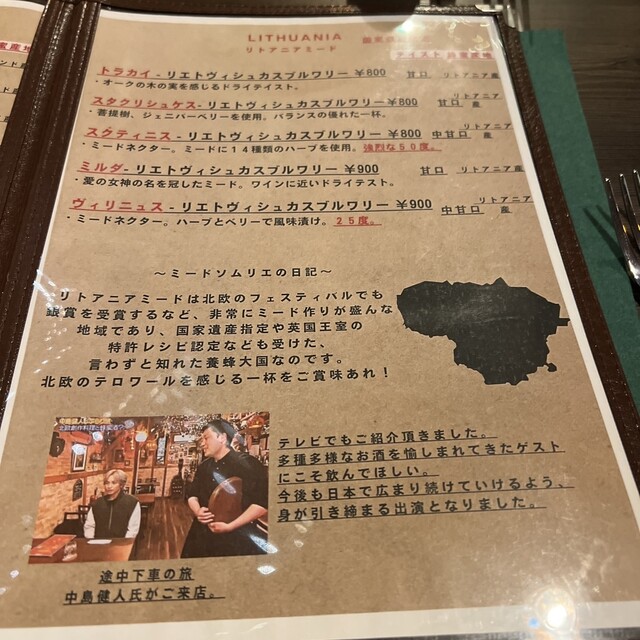 LITHUANIA
リトアニアミード
テイスト
トラカイ - リエトヴィシュカスブルワリー ￥800 甘口 リトアニア産
・オークの木の実を感じるドライテイスト。
スタクリシュケス- リエトヴィシュカスブルワリー ￥800 甘口 リトアニア産
・菩提樹、ジェニパーベリーを使用。バランスの優れた一杯。
スクティニス - リエトヴィシュカスブルワリー ￥800 中甘口 リトアニア産
・ミードネクター。ミードに１４種類のハーブを使用。強烈な５０度。
ミルダ- リエトヴィシュカスブルワリー ￥900 甘口 リトアニア産
・愛の女神の名を冠したミード。ワインに近いドライテスト。
ヴィリニュス - リエトヴィシュカスブルワリー ￥900 中甘口 リトアニア産
・ミードネクター。ハーブとベリーで風味漬け。２５度。
〜ミードソムリエの日記〜
リトアニアミードは北欧のフェスティバルでも
銀賞を受賞するなど、非常にミード作りが盛んな
地域であり、国家遺産指定や英国王室の
特許レシピ認定なども受けた、
言わずと知れた養蜂大国なのです。
北欧のテロワールを感じる一杯をご賞味あれ！
テレビでもご紹介頂きました。
多種多様なお酒を愉しまれてきたゲスト
にこそ飲んでほしい。
今後も日本で広まり続けていけるよう、
身が引き締まる出演となりました。
途中下車の旅
中島健人氏がご来店。